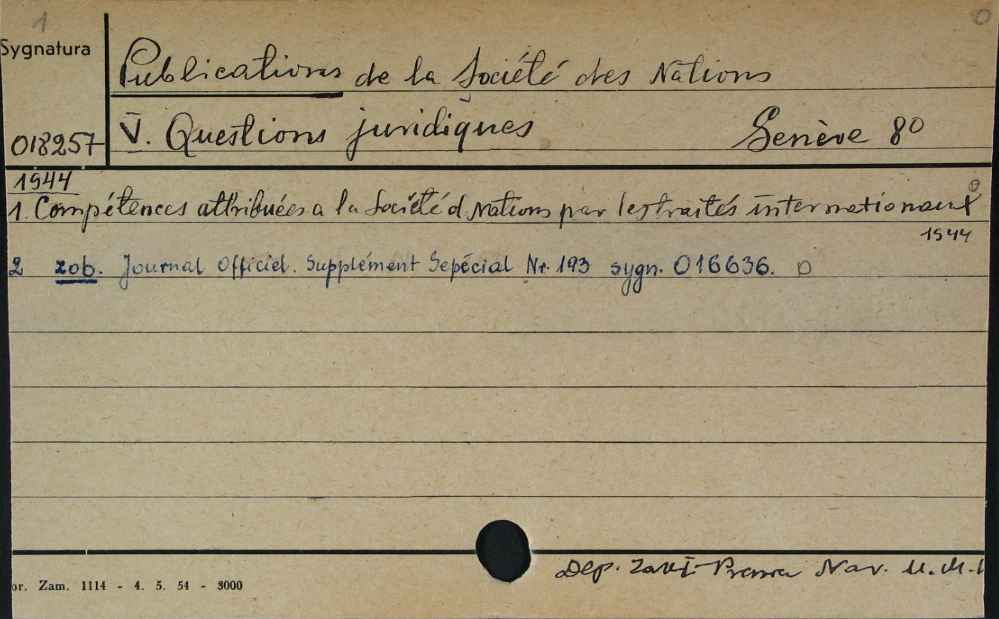 1
0
Sygnatura
Publications de la Société des Nations
018257
V. Questions juridiques Genève 8⁰
1944
1. Compétences attribuées a la Société d Nations par les traités internationaux 0
1944
2 zob. Journal Officiel. Supplément Sepécial Nr. 193 sygn. 016636. D
Dep.
or. Zam. 1114 - 4. 5. 54 - 3000